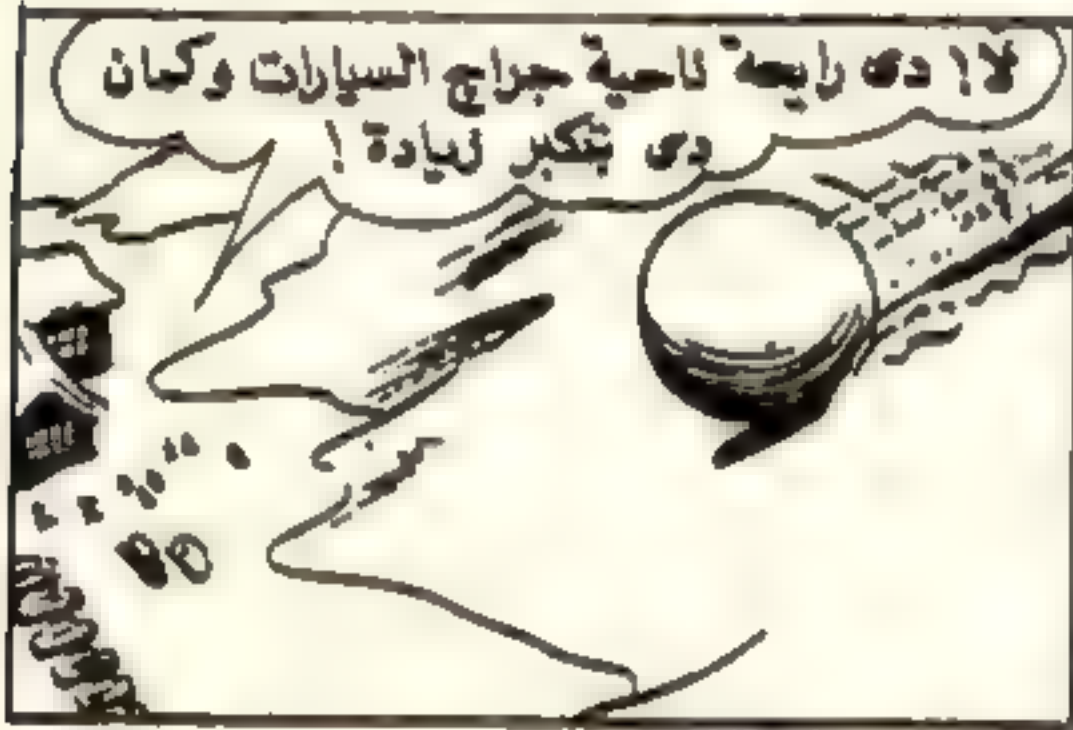 لا! دى رايحة ناحية جراج السيارات وكمان
دى بتكبر زيادة!